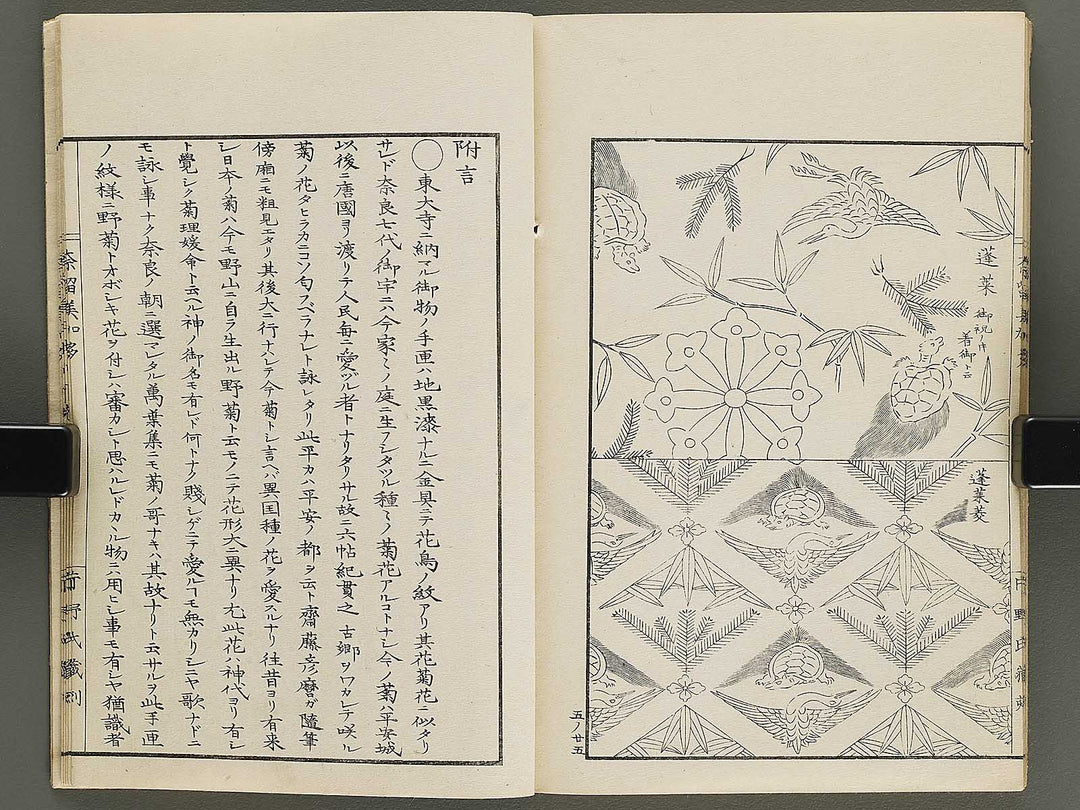 蓬莱
御祝ノ時
着御ト云
蓬莱菱
五ノ廿五
附言
◯東大寺ニ納マル御物ノ手匣ハ地黒漆ナルニ金具ニテ花鳥ノ紋アリ其花菊花ニ似タリ
サレド奈良七代ノ御宇ニハ今家々ノ庭ニ生フシタツル種々ノ菊花アルコトナシ今ノ菊ハ平安城
以後ニ唐國ヨリ渡リテ人民毎ニ愛ヅル者トナリタリサル故ニ六帖紀貫之古郷ヲワカレテ咲ル
菊ノ花タヒラカニコソ匂フベラナレト詠レタリ此平カハ平安ノ都ヲ云ト齋藤彦麿ガ隨筆
傍廂ニモ粗見エタリ其後大ニ行ナハレテ今菊トシ言ヘバ異国種ノ花ヲ愛スルナリ往昔ヨリ有来
シ日本ノ菊ハ今モ野山ニ自ラ生出ル野菊ト云モノニテ花形大ニ異ナリ尤此花ハ神代ヨリ有シ
ト覺シク菊理媛命ト云ヘル神ノ御名モ有レド何トナク賤シゲニテ愛ルヿモ無カリシニヤ歌ナドニ
モ詠シ事ナク奈良ノ朝ニ選マレタル萬葉集ニモ菊ノ哥ナキハ其故ナリト云サルヲ此手匣
ノ紋様ニ野菊トオボシキ花ヲ付シハ審カシト思ハルレドカヽル物ニハ用ヒシ事モ有シヤ猶識者